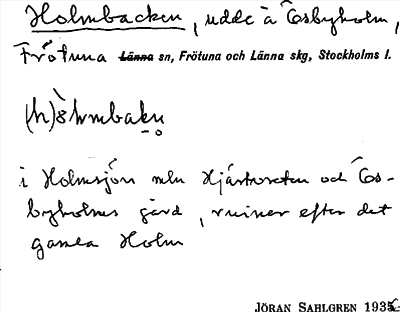 Holmbacken, udde å Ösbyholm,
Frötuna Länna sn, Frötuna och Länna skg, Stockholms l.
i Holmsjön mln Hjärtverten och Ös-
byholms gård, ruiner efter det
gamla Holm
JÖRAN SAHLGREN 1935